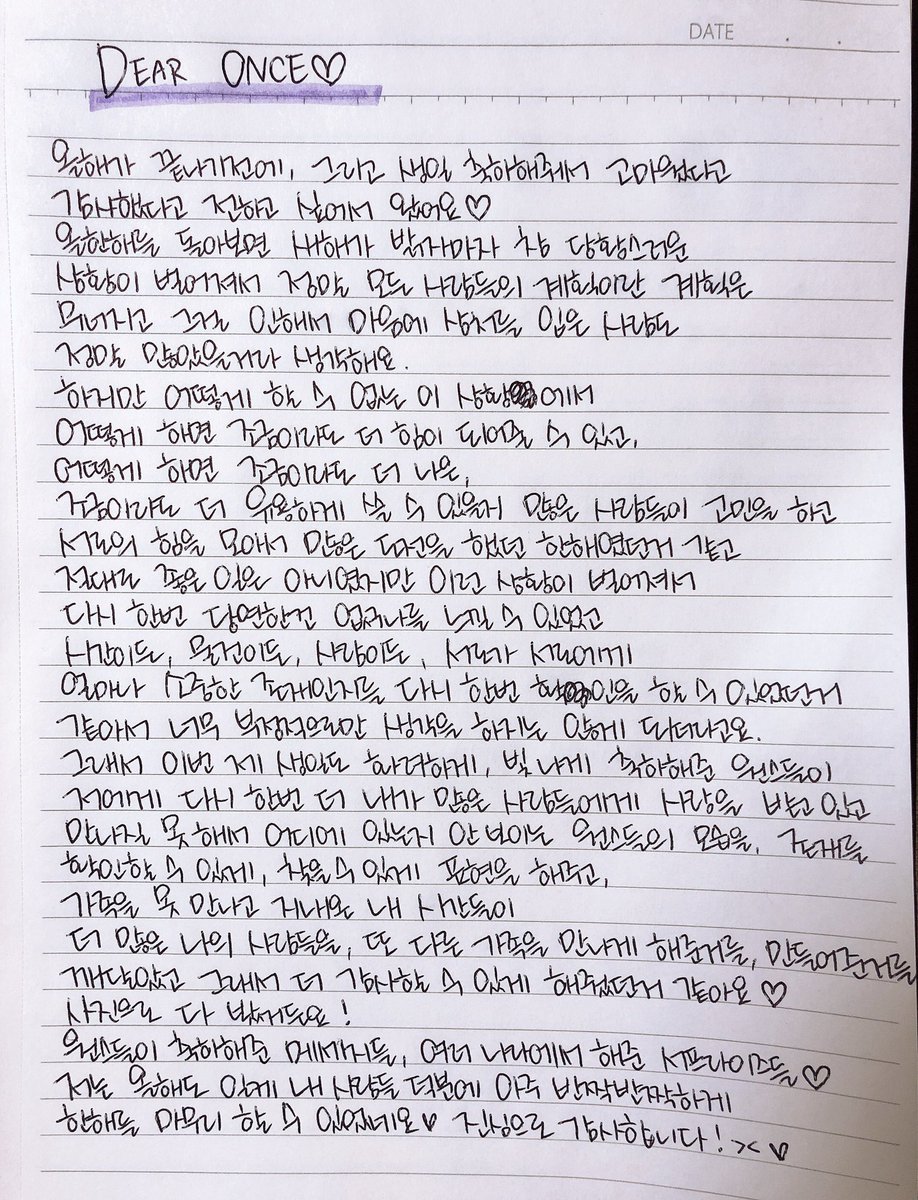 DATE . .
DEAR ONCE♡
올해가 끝나기전에, 그리고 생일 축하해줘서 고마웠다고
감사했다고 전하고 싶어서 왔어요♡
올한해를 돌아보면 새해가 밝자마자 참 당황스러운
상황이 벌어져서 정말 모든 사람들의 계획이란 계획은
무너지고 그걸 인해서 마음에 상처를 입은 사람도
정말 많았을거라 생각해요.
하지만 어떻게 할 수 없는 이 상황에서
어떻게 하면 조금이라도 더 힘이 되어줄 수 있고,
어떻게 하면 조금이라도 더 나은,
조금이라도 더 유용하게 쓸 수 있을지 많은 사람들이 고민을 하고
서로의 힘을 모아서 많은 도전을 했던 한해였던거 같고
절대로 좋은 일은 아니였지만 이런 상황이 벌어져서
다시 한번 당연한건 없구나를 느낄 수 있었고
시간이든, 물건이든, 사람이든, 서로가 서로에게
얼마나 소중한 존재인지를 다시 한번 확인을 할 수 있었던거
같아서 너무 부정적으로만 생각을 하지는 않게 되더라고요.
그래서 이번 제 생일도 화려하게, 빛나게 축하해준 원스들이
저에게 다시 한번 더 내가 많은 사람들에게 사랑을 받고 있고
만나질 못해서 어디에 있는지 안보이는 원스들의 모습을, 존재를
확인할 수 있게, 찾을수 있게 표현을 해주고,
가족을 못 만나고 지내온 내 시간들이
더 많은 나의 사람들을, 또 다른 가족을 만나게 해준거를, 만들어준거를
깨달았고 그래서 더 감사할 수 있게 해줬던거 같아요♡
사진으로 다 봤거든요!
원스들이 축하해준 메세지들, 여러 나라에서 해준 서프라이즈들♡
저는 올해도 있게 내 사람들 덕분에 아주 반짝반짝하게
한해를 마무리 할 수 있었네요♡ 진심으로 감사합니다! >< ♡